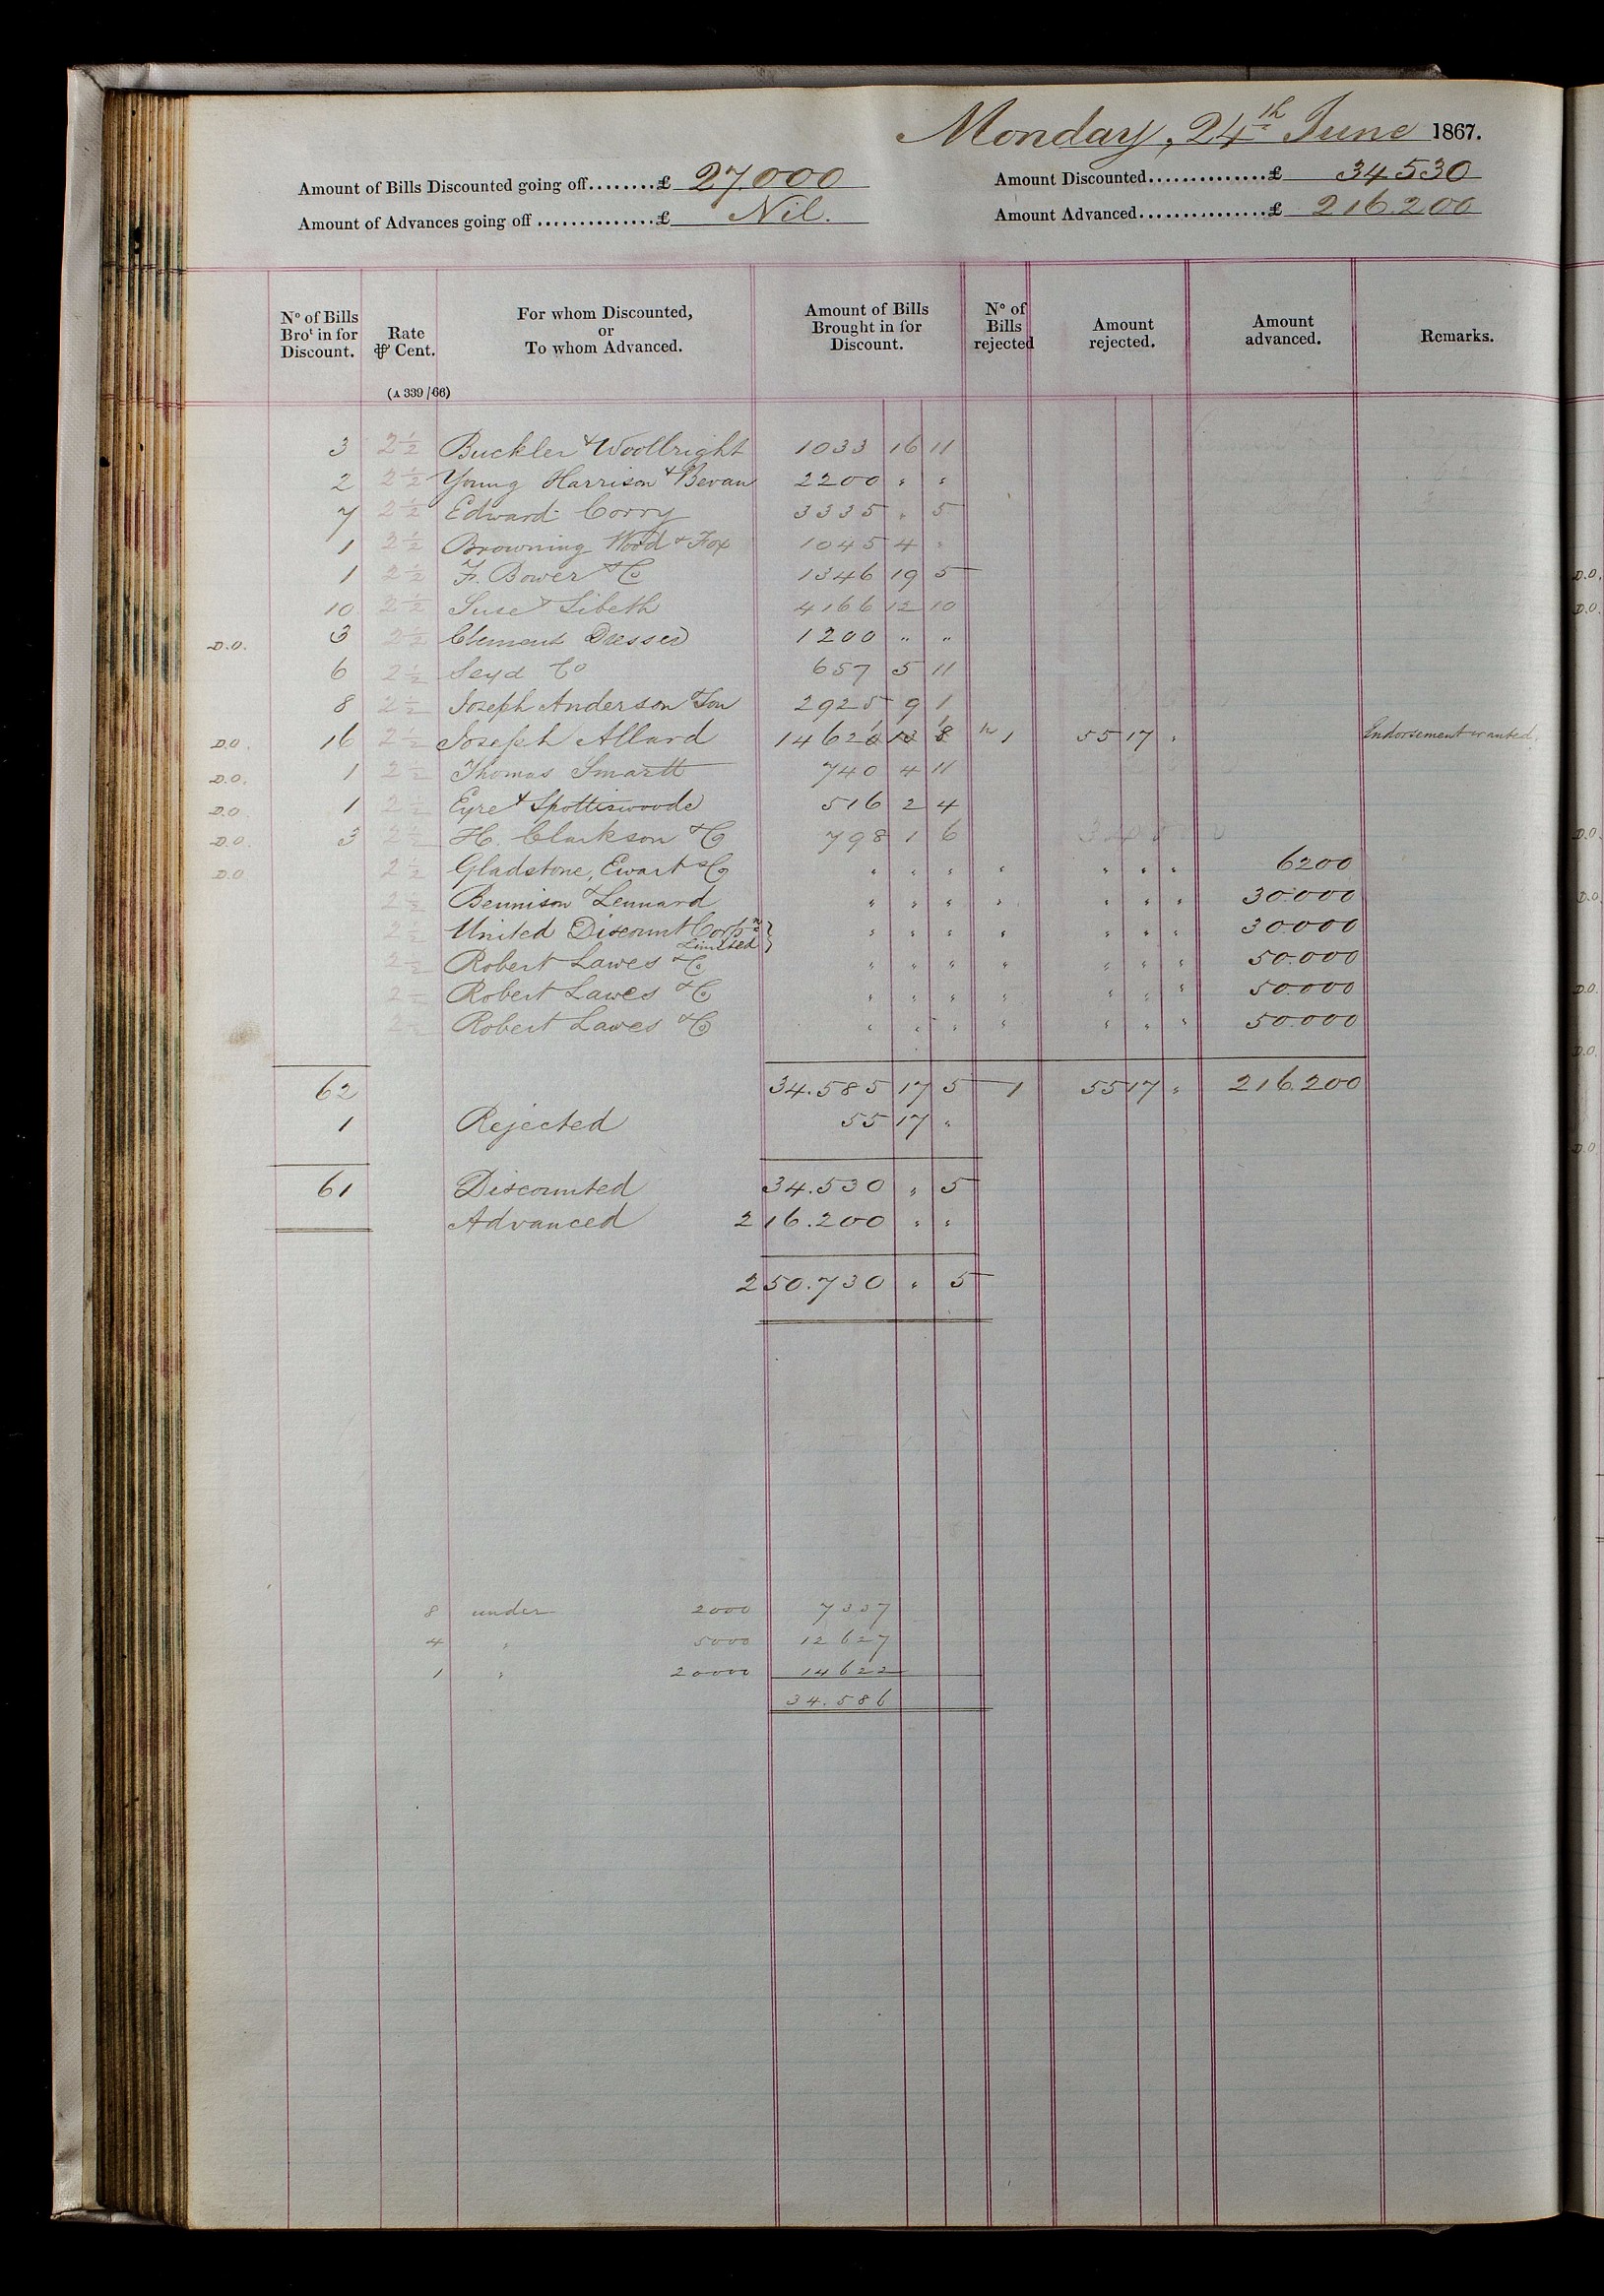 Monday, 24th June 1867.
Amount of Bills Discounted going off........£ 27,000 Amount Discounted...............£ 34530
Amount of Advances going off ...............£ Nil. Amount Advanced................£ 216.200
No of Bills Brot in for Discount. Rate ⅌ Cent. (A 339/66) For whom Discounted, or To whom Advanced. Amount of Bills Brought in for Discount. No of Bills rejected Amount rejected. Amount advanced. Remarks.
3 2½ Buckler & Woolbright 1033 16 11
2 2½ Young Harrison & Bevan 2200 " "
7 2½ Edward Corry 3335 " 5
1 2½ Browning Wood & Fox 1045 4 "
1 2½ F. Bower & Co 1346 19 5
10 2½ Suse & Sibeth 4166 12 10
D.O. 3 2½ Clement Dresser 1200 " "
6 2½ Seyd & Co 657 5 11
8 2½ Joseph Anderson & Son 2925 9 1
D.O. 16 2½ Joseph Allard 1462 1 1 1 55 17 " Endorsement wanted.
D.O. 1 2½ Thomas Smartt 740 4 11
D.O. 1 2½ Eyre & Spottiswoode 516 2 4
D.O. 3 2½ H. Clarkson & Co 798 1 6
D.O. 2½ Gladstone, Ewart & Co " " " " " " " 6200
2½ Bennison & Lennard " " " " " " " 30.000
2½ United Discount Corpn Limited } " " " " " " " 30.000
2½ Robert Lawes & Co " " " " " " " 50.000
2½ Robert Lawes & Co " " " " " " " 50.000
2½ Robert Lawes & Co " " " " " " " 50.000
62 34.585 17 5 1 55 17 " 216.200
1 Rejected 55 17 "
61 Discounted 34.530 " 5
Advanced 216.200 " "
250.730 " 5
8 under 2000 7337
4 " 5000 12627
1 " 20000 14622
34.586